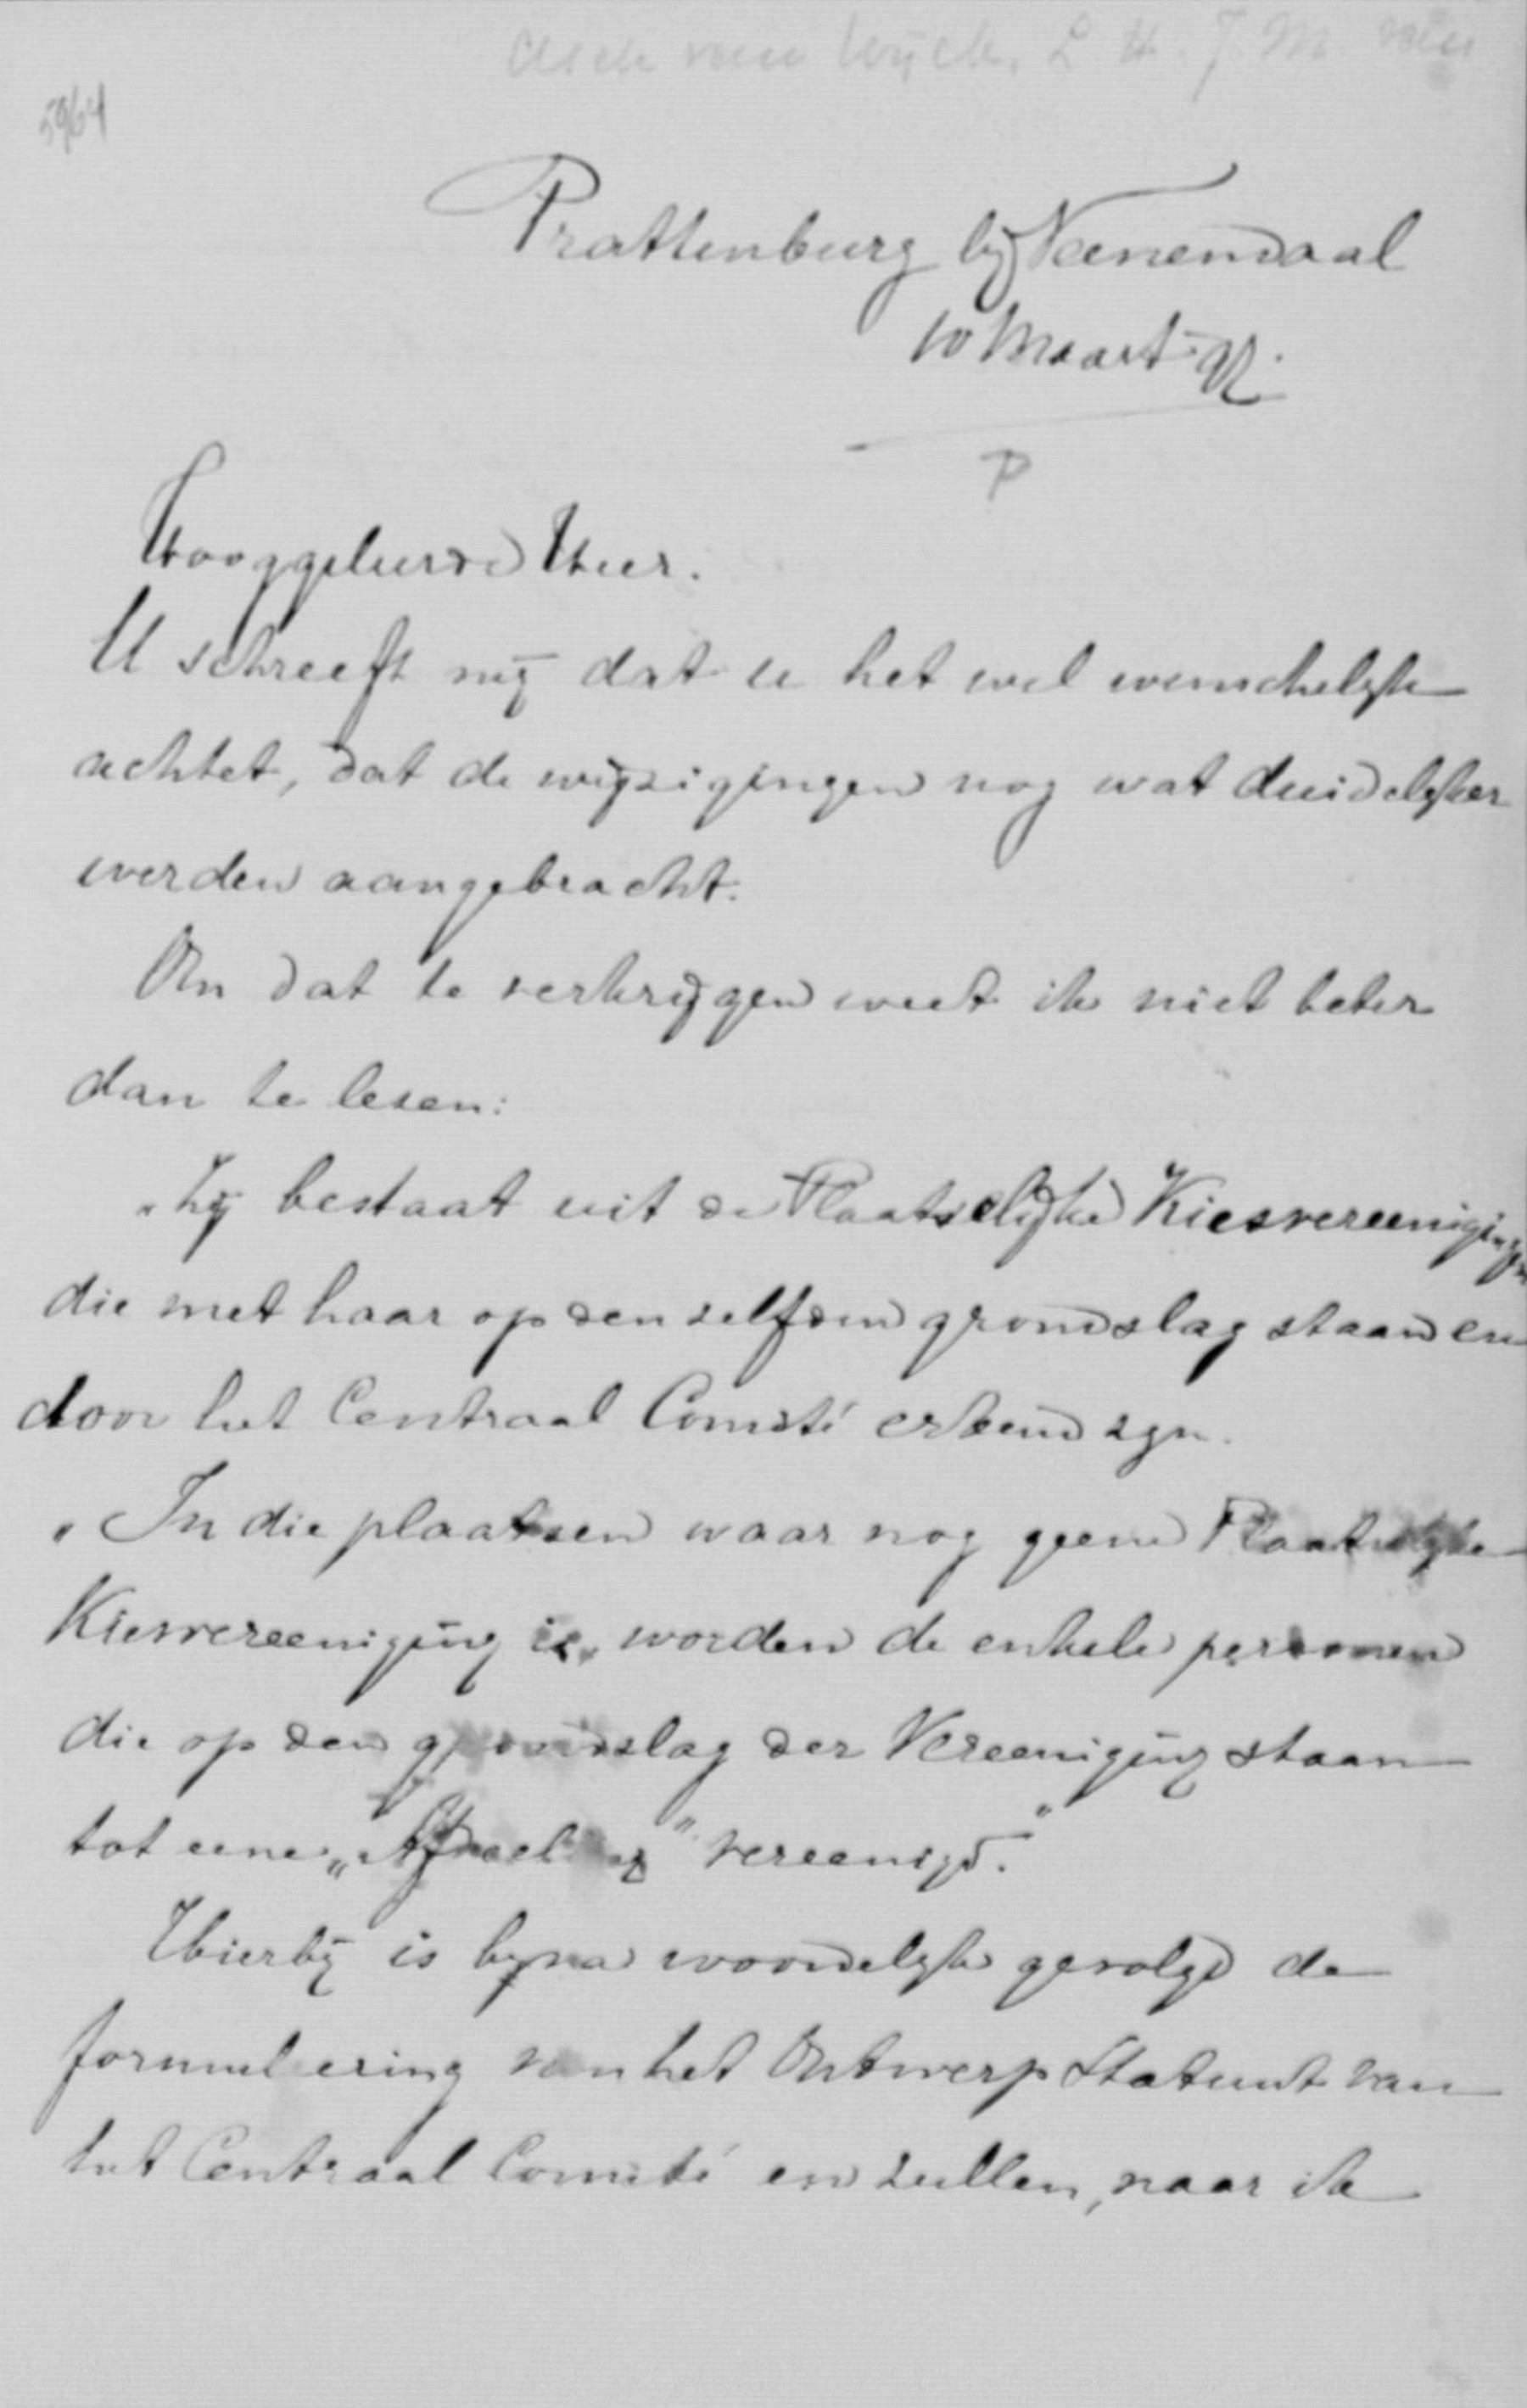 Asch van Wijck, L. H. J. M. van
5964
Prattenburg bij Veenendaal
10 Maart 92.
P
Hooggeleerde Heer.
U schreeft mij dat u het wel wenschelijk
achtet, dat de wijzigingen nog wat duidelijker
werden aangebracht.
Om dat te verkrijgen weet ik niet beter
dan te lezen:
„Zij bestaat uit de Plaatselijke Kiesvereenigingen
die met haar op denzelfden grondslag staan en
door het Centraal Comité erkend zijn.
„In die plaatsen waar nog geene Plaatselijke
Kiesvereeniging is, worden de enkele personen
die op den grondslag der Vereeniging staan
tot eene „Afdeeling" vereenigd."
Hierbij is bijna woordelijk gevolgd de
formuleering van het Ontwerp Statuut van
het Centraal Comité en zullen, naar ik